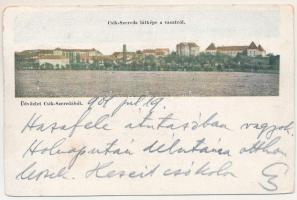 Csik-Szereda látképe a vasutról.
Üdvözlet Csik-Szeredából.
901 júl 19.
Hazafelé átutazóban vagyok.
Holnapután délutánra otthon
leszek. Kezeit csókolom